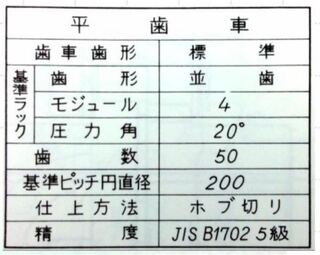 平歯車
歯車歯形 標準
基準ラック
歯形 並歯
モジュール 4
圧力角 20°
歯数 50
基準ピッチ円直径 200
仕上方法 ホブ切り
精度 JIS B1702 5級